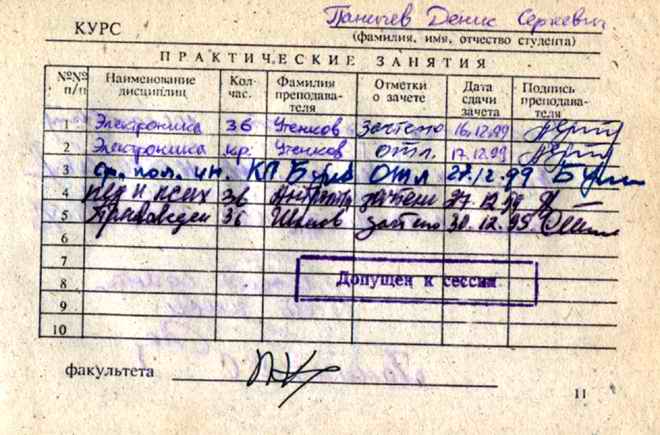 КУРС Паничев Денис Сергеевич
(фамилия, имя, отчество студента)
ПРАКТИЧЕСКИЕ ЗАНЯТИЯ
№№ п/п Наименование дисциплин Кол-час. Фамилия преподава-теля Отметки о зачете Дата сдачи зачета Подпись преподава-теля
1 Электроника 36 Утенков зачтено 16.12.99
2 Электроника кр. Утенков отл. 17.12.99
3 КП отл 12.99
4 пед и псих 36 зачтено 27.12.99
5 Правоведен 36 зачтено 30.12.99
6
7
8 Допущен к сессии
9
10
факультета
11